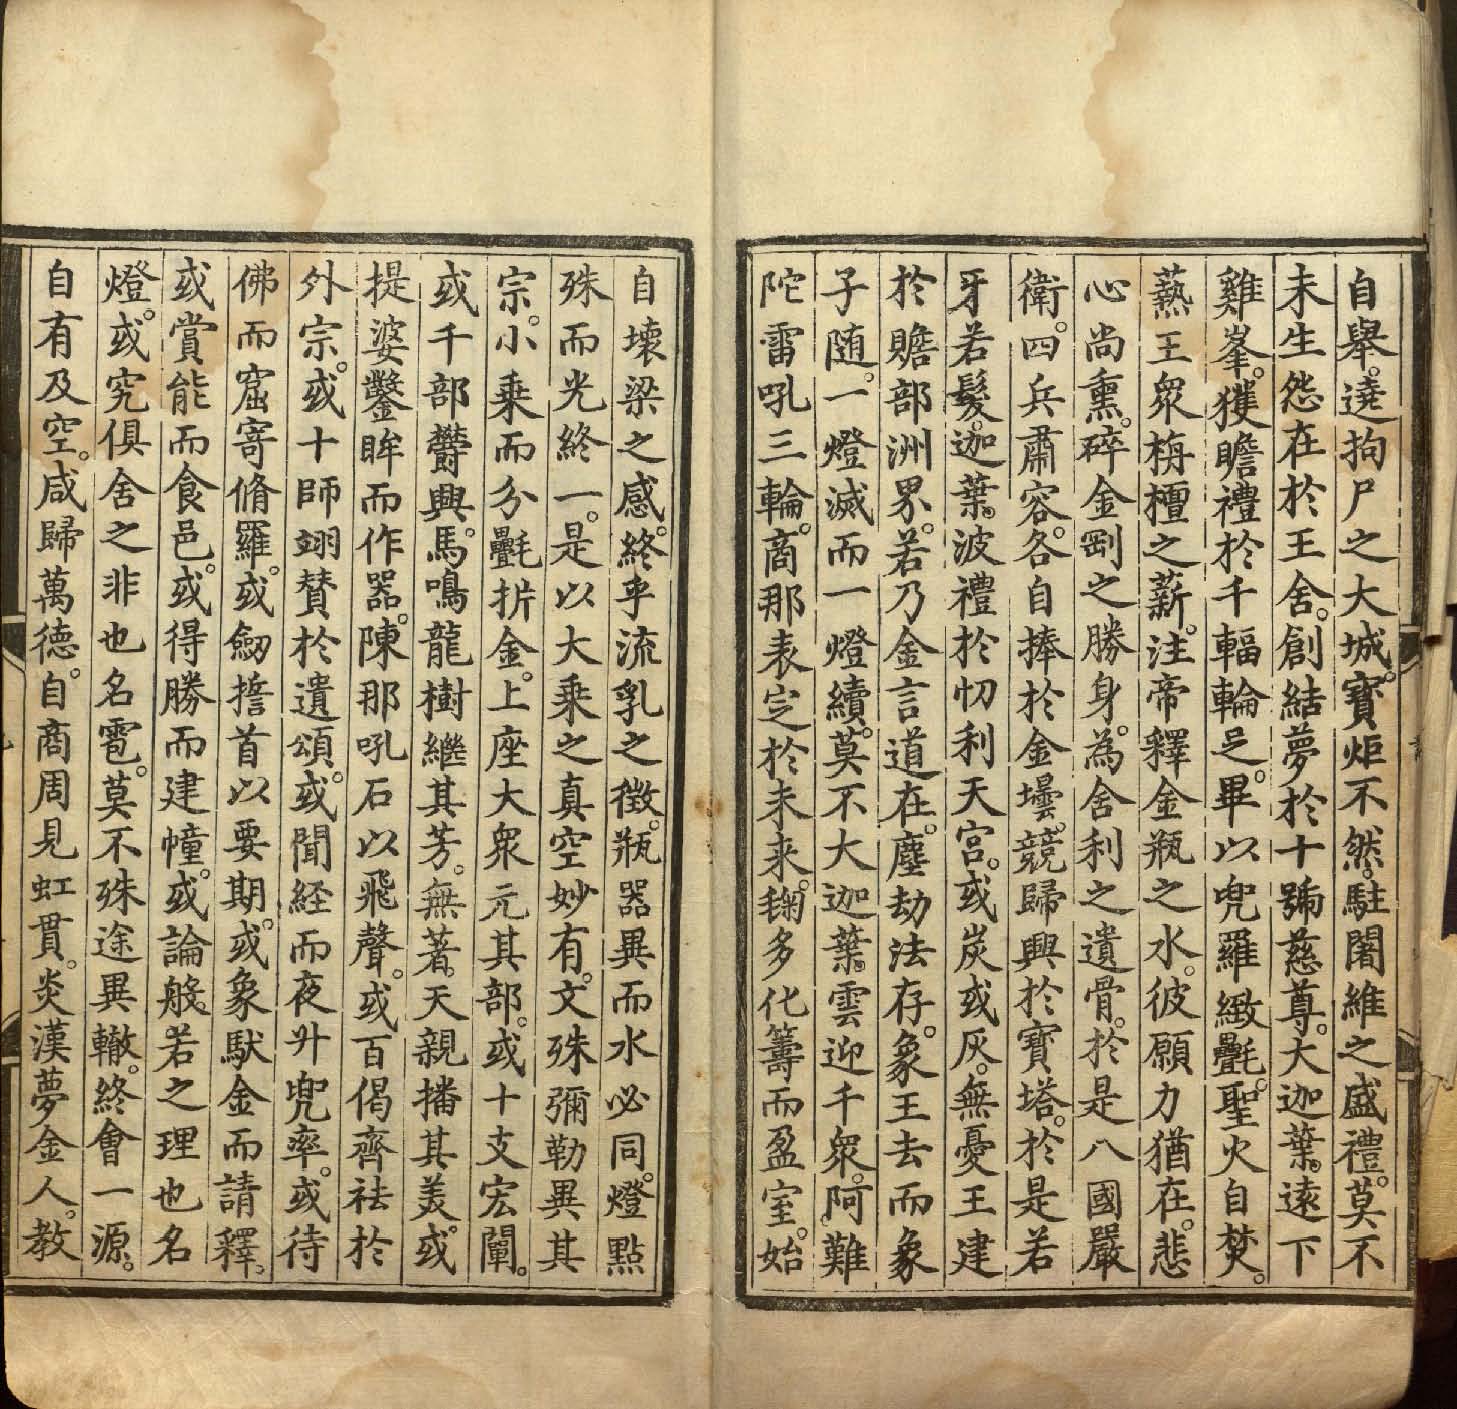 自舉。遶拘尸之大城。寶炬不然。駐闍維之盛禮。莫不
未生怨在於王舍。創結夢於十號慈尊。大迦葉。遠下
雞峯。獲瞻禮於千輻輪𠯁。畢以兜羅緻㲲。聖火自焚。
爇王眾栴檀之薪。注帝釋金瓶之水。彼願力猶在。悲
心尚熏。碎金剛之勝身。為舍利之遺骨。於是八國嚴
衛。四兵肅容。各自捧於金壜。競歸興於寶塔。於是若
牙若髮。迦葉。波禮於忉利天宮。或炭或灰。無憂王建
於贍部洲界。若乃金言道在。塵劫法存。象王去而象
子随。一燈滅而一燈續。莫不大迦葉。雲迎千眾。阿難
陀雷吼三輪。商那表㝎於未来。毱多化籌而盈室。始
自壞梁之感。終乎流乳之徵。瓶器異而水必同。燈點
殊而光終一。是以大乘之真空妙有。文殊彌勒異其
宗。小乘而分㲲析金。上座大眾元其部。或十支宏闡。
或千部欝興。馬鳴龍樹繼其芳。無著。天親播其美。或
提婆鑿眸而作器。陳那吼石以飛聲。或百偈齊袪於
外宗。或十師翊賛於遺頌。或聞経而夜升兜率。或待
佛而窟寄脩羅。或劒誓首以要期。或象馱金而請釋。
或賞能而食邑。或得勝而建幢。或論般若之理也名
燈。或究俱舍之非也名雹。莫不殊途異轍。終會一源。
自有及空。咸歸萬德。自商周見虹貫。炎漢夢金人。教